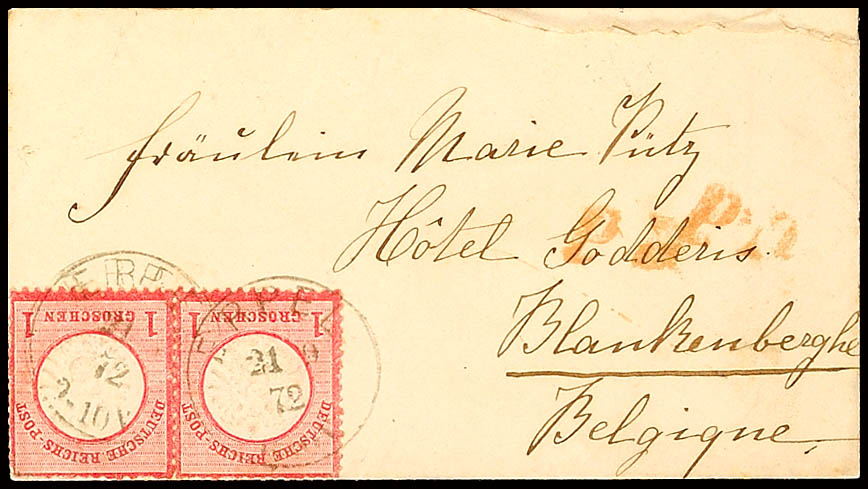 Fräulein Marie Pütz
Hôtel Godderis.
Blankenberghe
Belgique.
P.D.
ERPEL
21 9
72
72
2-10
1 GROSCHEN 1
DEUTSCHE REICHS-POST
1 GROSCHEN 1
DEUTSCHE REICHS-POST